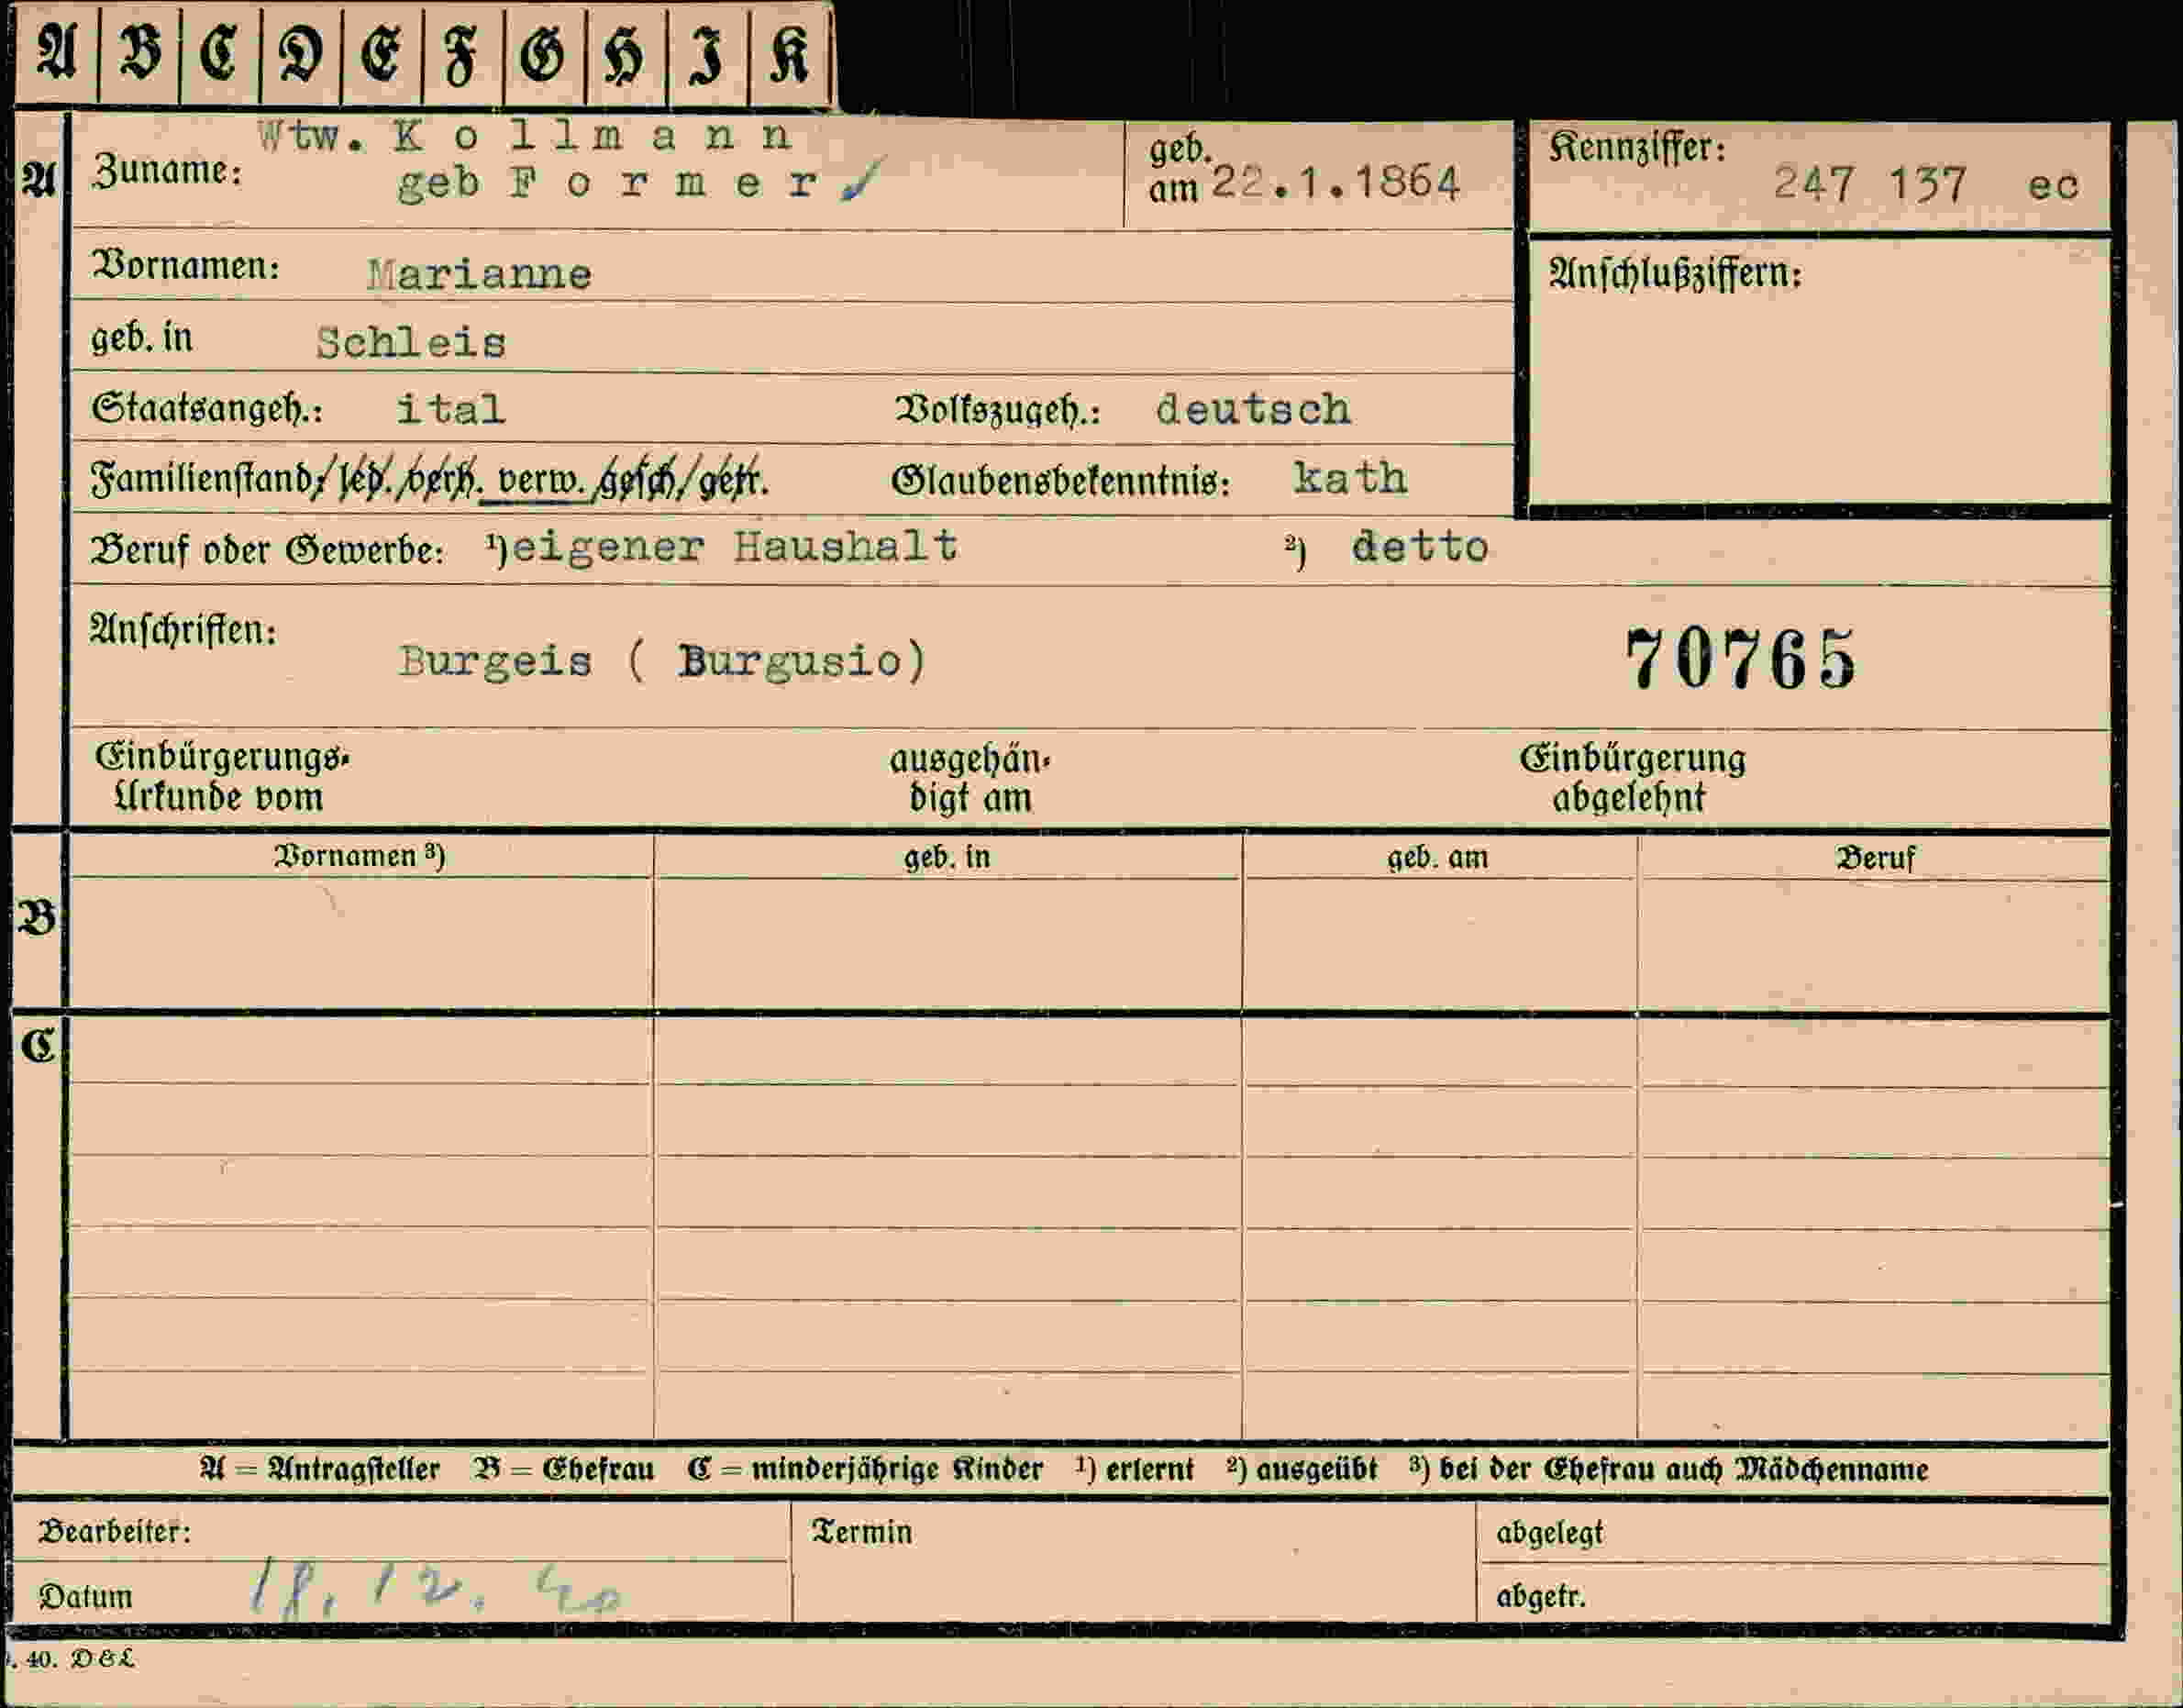 A B C D E F G H I K
A
Zuname: Wtw. Kollmann
geb Former
geb. am 22.1.1864
Kennziffer: 247 137 ec
Vornamen: Marianne
Anschlußziffern:
geb. in Schleis
Staatsangeh.: ital Volkszugeh.: deutsch
Familienstand: led. verh. verw. gesch/getr. Glaubensbekenntnis: kath
Beruf oder Gewerbe: ¹) eigener Haushalt ²) detto
Anschriften: Burgeis ( Burgusio)
70765
Einbürgerungs-
Urkunde vom
ausgehän-
digt am
Einbürgerung
abgelehnt
Vornamen ³) geb. in geb. am Beruf
B
C
A = Antragsteller B = Ehefrau C = minderjährige Kinder ¹) erlernt ²) ausgeübt ³) bei der Ehefrau auch Mädchenname
Bearbeiter: Termin abgelegt
Datum 18. 12. 40 abgetr.
. 40. D&L